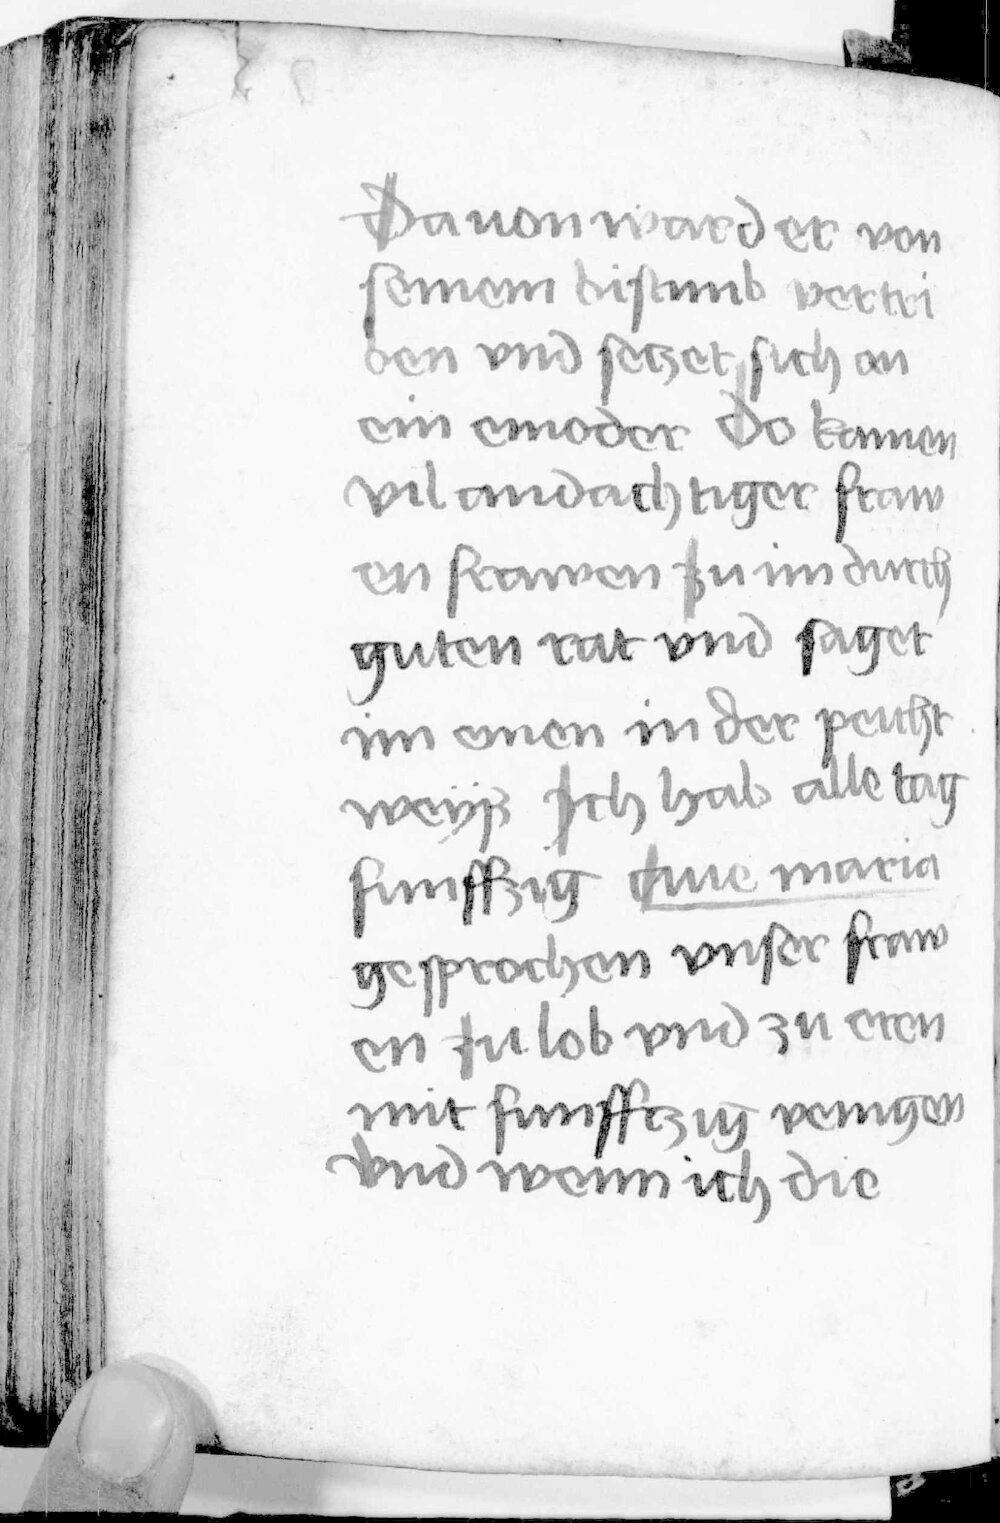 Dauon ward er von
seinem bistumb vertri
ben vnd seczet sich an
ein einoder Do kamen
vil andachtiger fraw
en frawen zu im durch
guten rat vnd saget
im einen in der peicht
weyß Ich hab alle tag
funffzig Aue maria
gesprochen vnser fraw
en zu lob vnd zu eren
mit funffczig venigen
Vnd wenn ich die